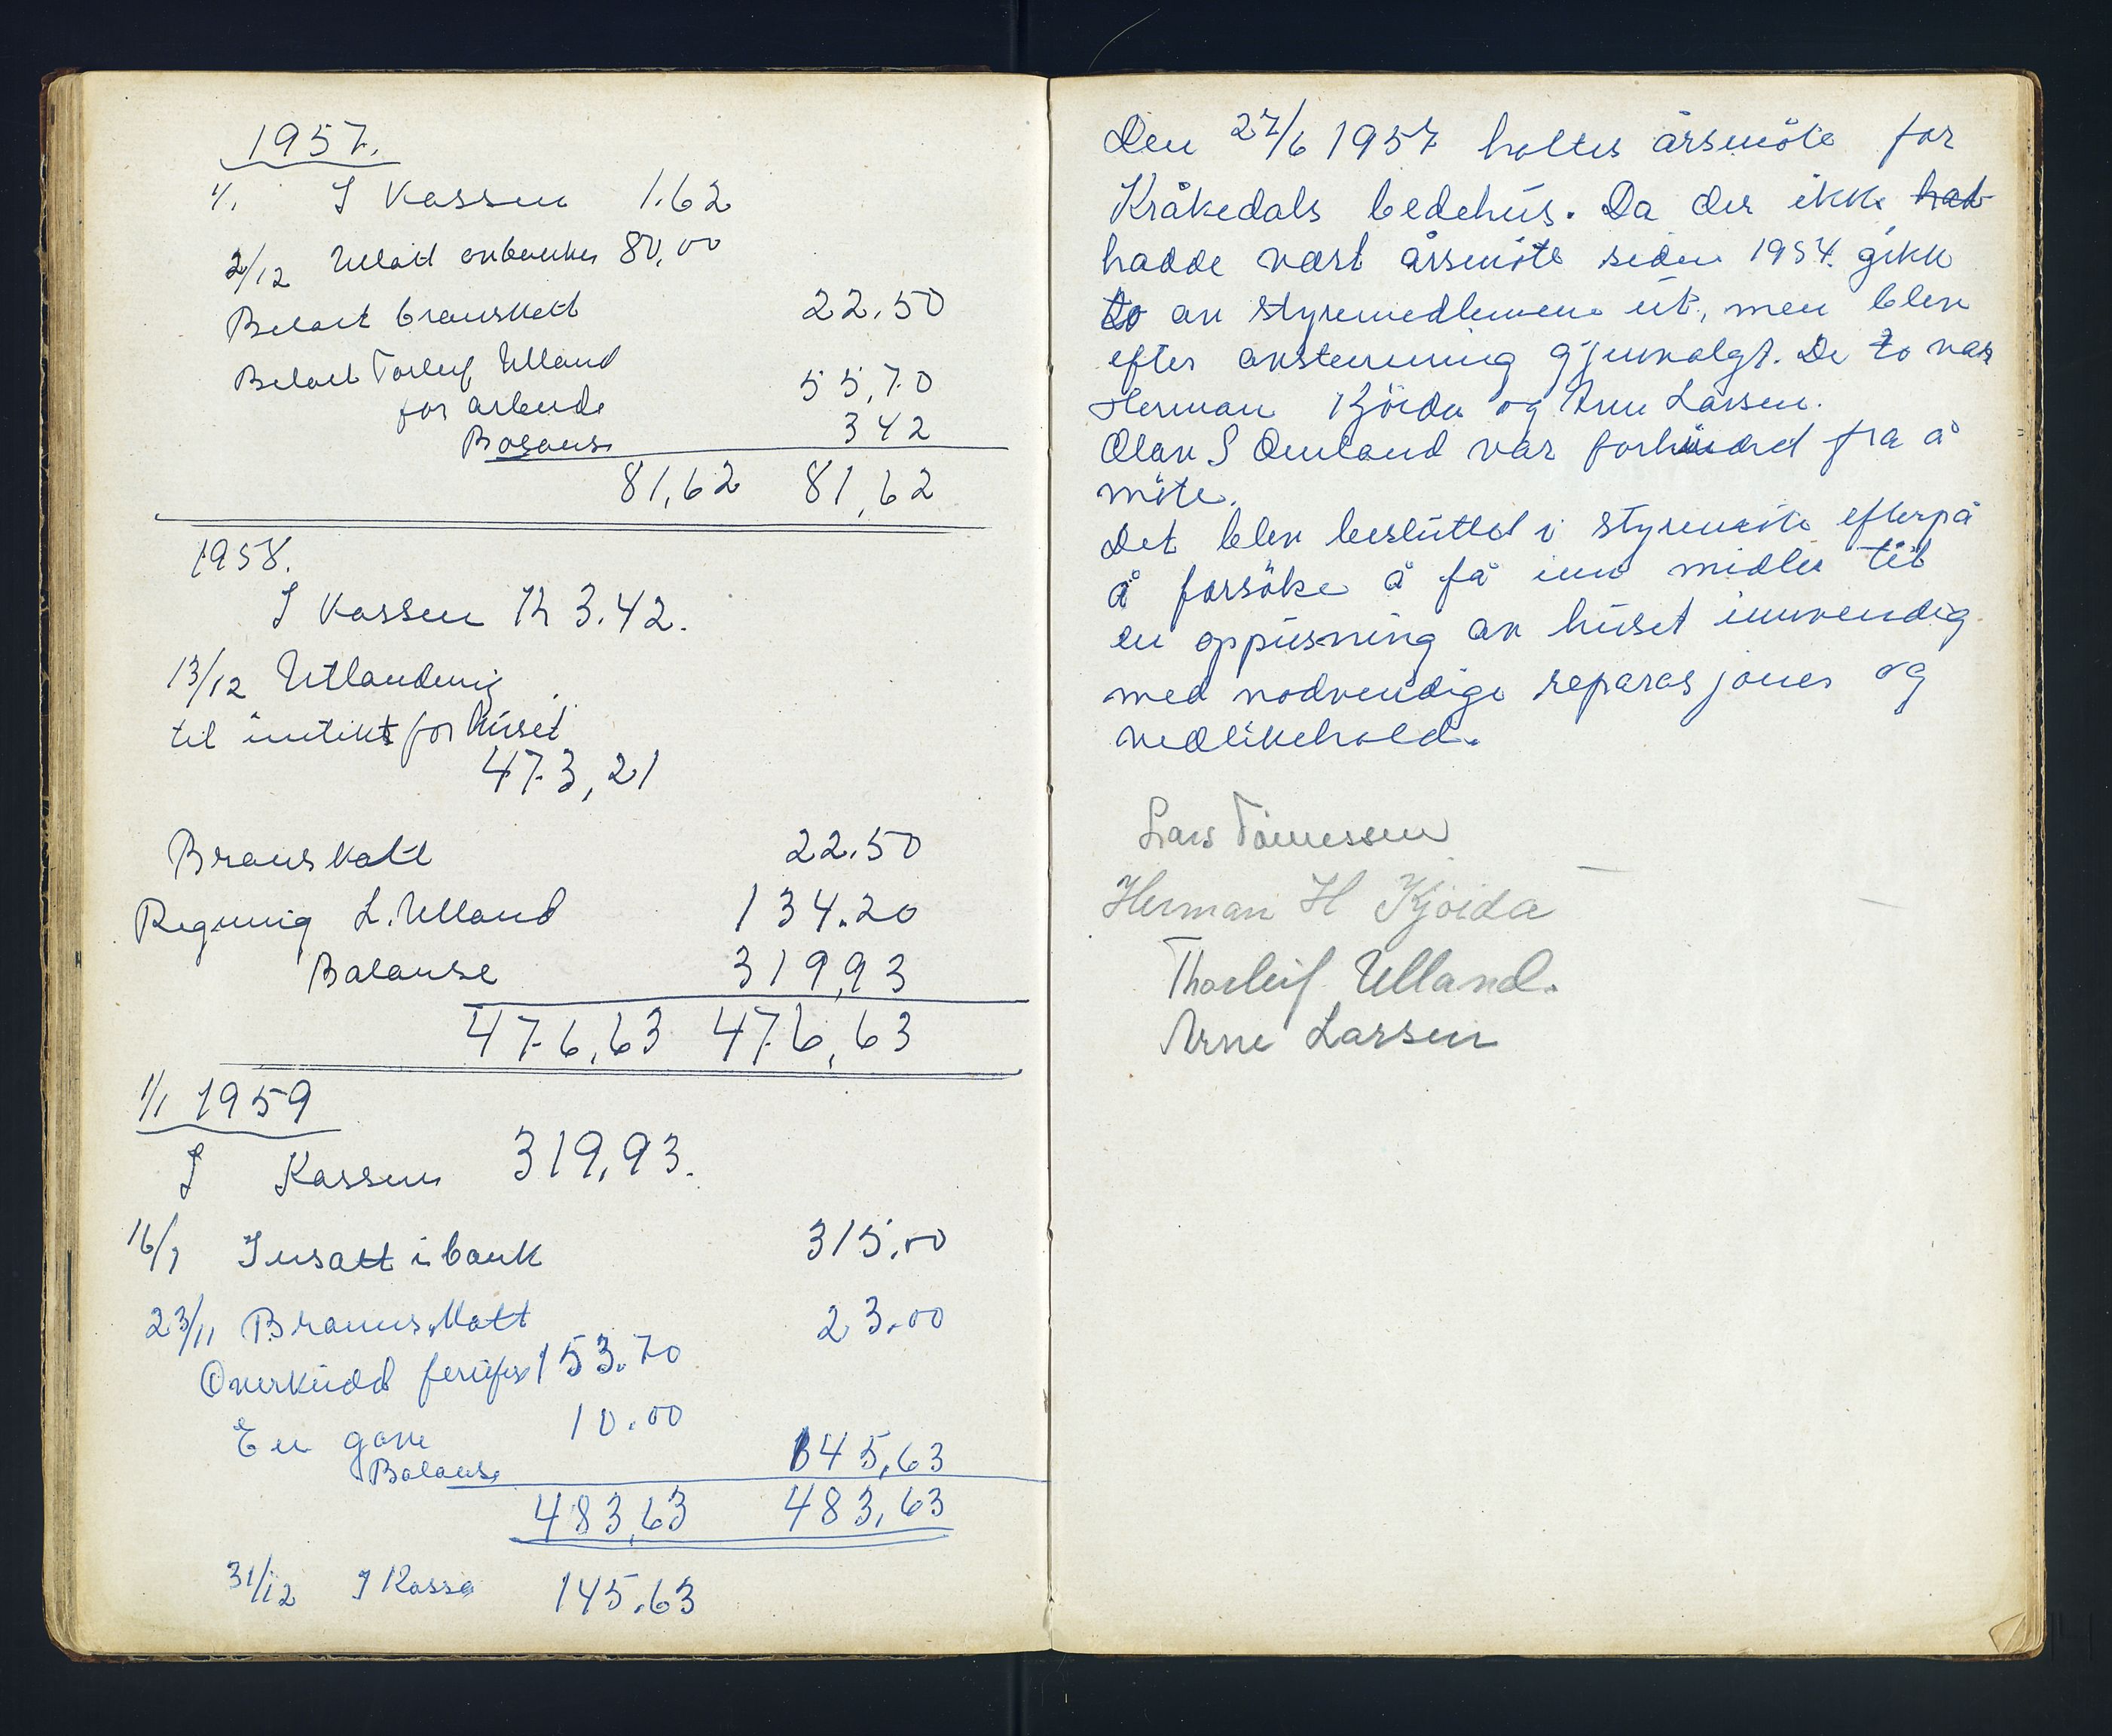 1957.
1/1 I Kassen 1.62
2/12 Utatt avbanken 80,00
Betalt branskatt 22.50
Betalt Torleif Ulland
for arbeide 55,70
Balanse 342
81,62 81,62
1958.
I Kassen Kr 3.42.
13/12 Utlandenig
til inntekt for huset
473,21
Branskatt 22.50
Regning L. Ulland 134.20
Balanse 319,93
476,63 476,63
1/1 1959
I Kassen 319,93.
16/1 Insatt i bank 315,00
23/11 Brannskatt 23.00
Overskudd 153.70
En gave 10.00
Balanse 145,63
483,63 483,63
31/12 I Kassa 145.63
Den 27/6 1957 holtes årsmöte for
Kråkedals bedehus. Da der ikke hat
hadde vært årsmöte siden 1954. gikk
to av styremedlemene ut, men blev
efter avstemning gjenvalgt. De to var
Herman Kjöida og Arne Larsen.
Olav S Omland var forhindred fra å
möte.
Det blev besluttet i styremöte efterpå
å forsöke å få inn midler till
en oppusning av huset innvendig
med nodvendige reparasjoner og
vedlikehold.
Lars Tönnessen
Herman H Kjöida
Thorleif Ulland.
Arne Larsen